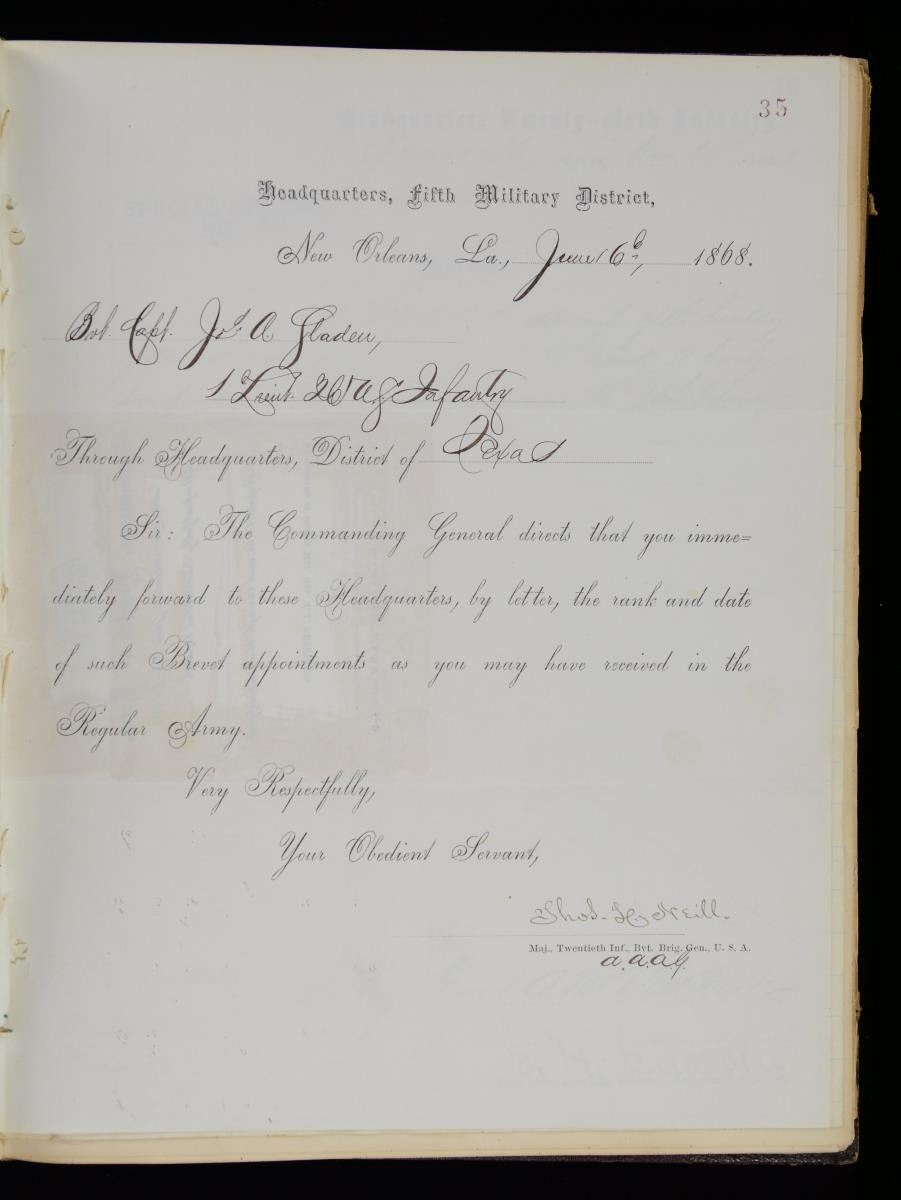 35
Headquarters, Fifth Military District,
New Orleans, La., June 6th, 1868.
Bvt. Capt. Jos. A Gladen,
1 Lieut. 26 Infantry
Through Headquarters, District of Texas
Sir: The Commanding General directs that you imme=
diately forward to these Headquarters, by letter, the rank and date
of such Brevet appointments as you may have received in the
Regular Army.
Very Respectfully,
Your Obedient Servant,
Thos. H. Neill.
Maj., Twentieth Inf., Bvt. Brig. Gen., U. S. A.
a.a.a.g.